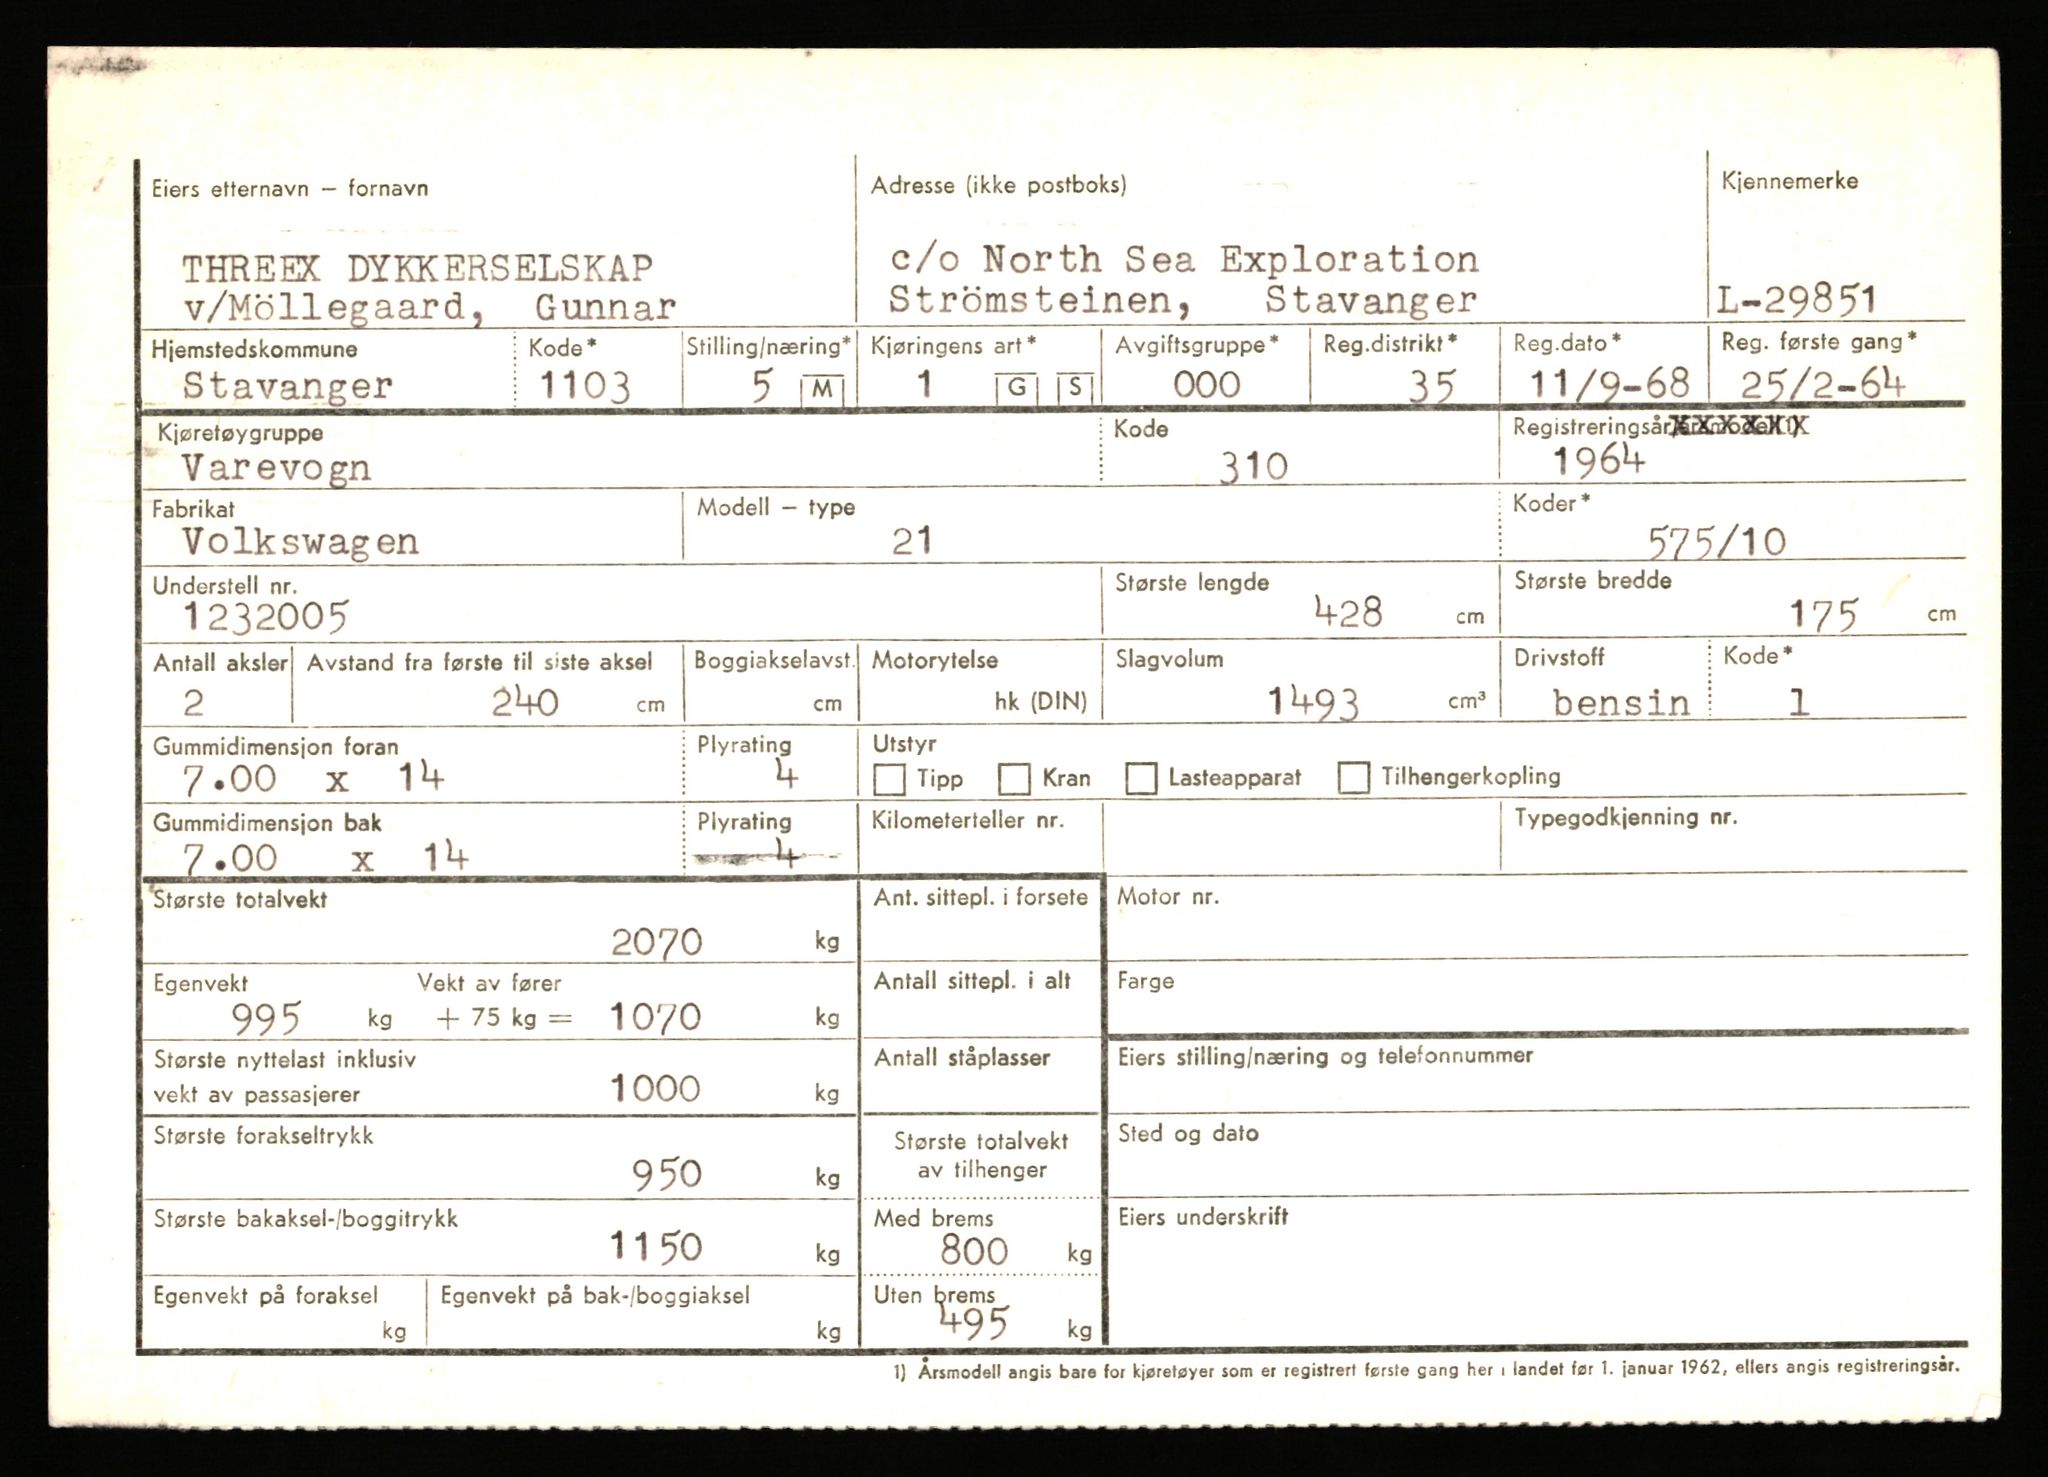 Eiers etternavn – fornavn
Adresse (ikke postboks)
Kjennemerke
THREEX DYKKERSELSKAP
v/Möllegaard, Gunnar
c/o North Sea Exploration
Strömsteinen, Stavanger
L-29851
Hjemstedskommune
Kode*
Stilling/næring*
Kjøringens art*
Avgiftsgruppe*
Reg.distrikt*
Reg.dato*
Reg. første gang*
Stavanger
1103
5 M
1 G S
000
35
11/9-68
25/2-64
Kjøretøygruppe
Kode
Registreringsår
Varevogn
310
1964
Fabrikat
Modell – type
Koder*
Volkswagen
21
575/10
Understell nr.
Største lengde
Største bredde
1232005
428 cm
175 cm
Antall aksler
Avstand fra første til siste aksel
Boggiakselavst.
Motorytelse
Slagvolum
Drivstoff
Kode*
2
240 cm
cm
hk (DIN)
1493 cm³
bensin
1
Gummidimensjon foran
Plyrating
Utstyr
7.00 x 14
4
Tipp Kran Lasteapparat Tilhengerkopling
Gummidimensjon bak
Plyrating
Kilometerteller nr.
Typegodkjenning nr.
7.00 x 14
4
Største totalvekt
Ant. sittepl. i forsete
Motor nr.
2070 kg
Egenvekt
Vekt av fører
Antall sittepl. i alt
Farge
995 kg + 75 kg = 1070 kg
Største nyttelast inklusiv
vekt av passasjerer
1000 kg
Antall ståplasser
Eiers stilling/næring og telefonnummer
Største forakseltrykk
950 kg
Største totalvekt
av tilhenger
Sted og dato
Største bakaksel-/boggitrykk
1150 kg
Med brems
800 kg
Eiers underskrift
Egenvekt på foraksel
kg
Egenvekt på bak-/boggiaksel
kg
Uten brems
495 kg
1) Årsmodell angis bare for kjøretøyer som er registrert første gang her i landet før 1. januar 1962, ellers angis registreringsår.